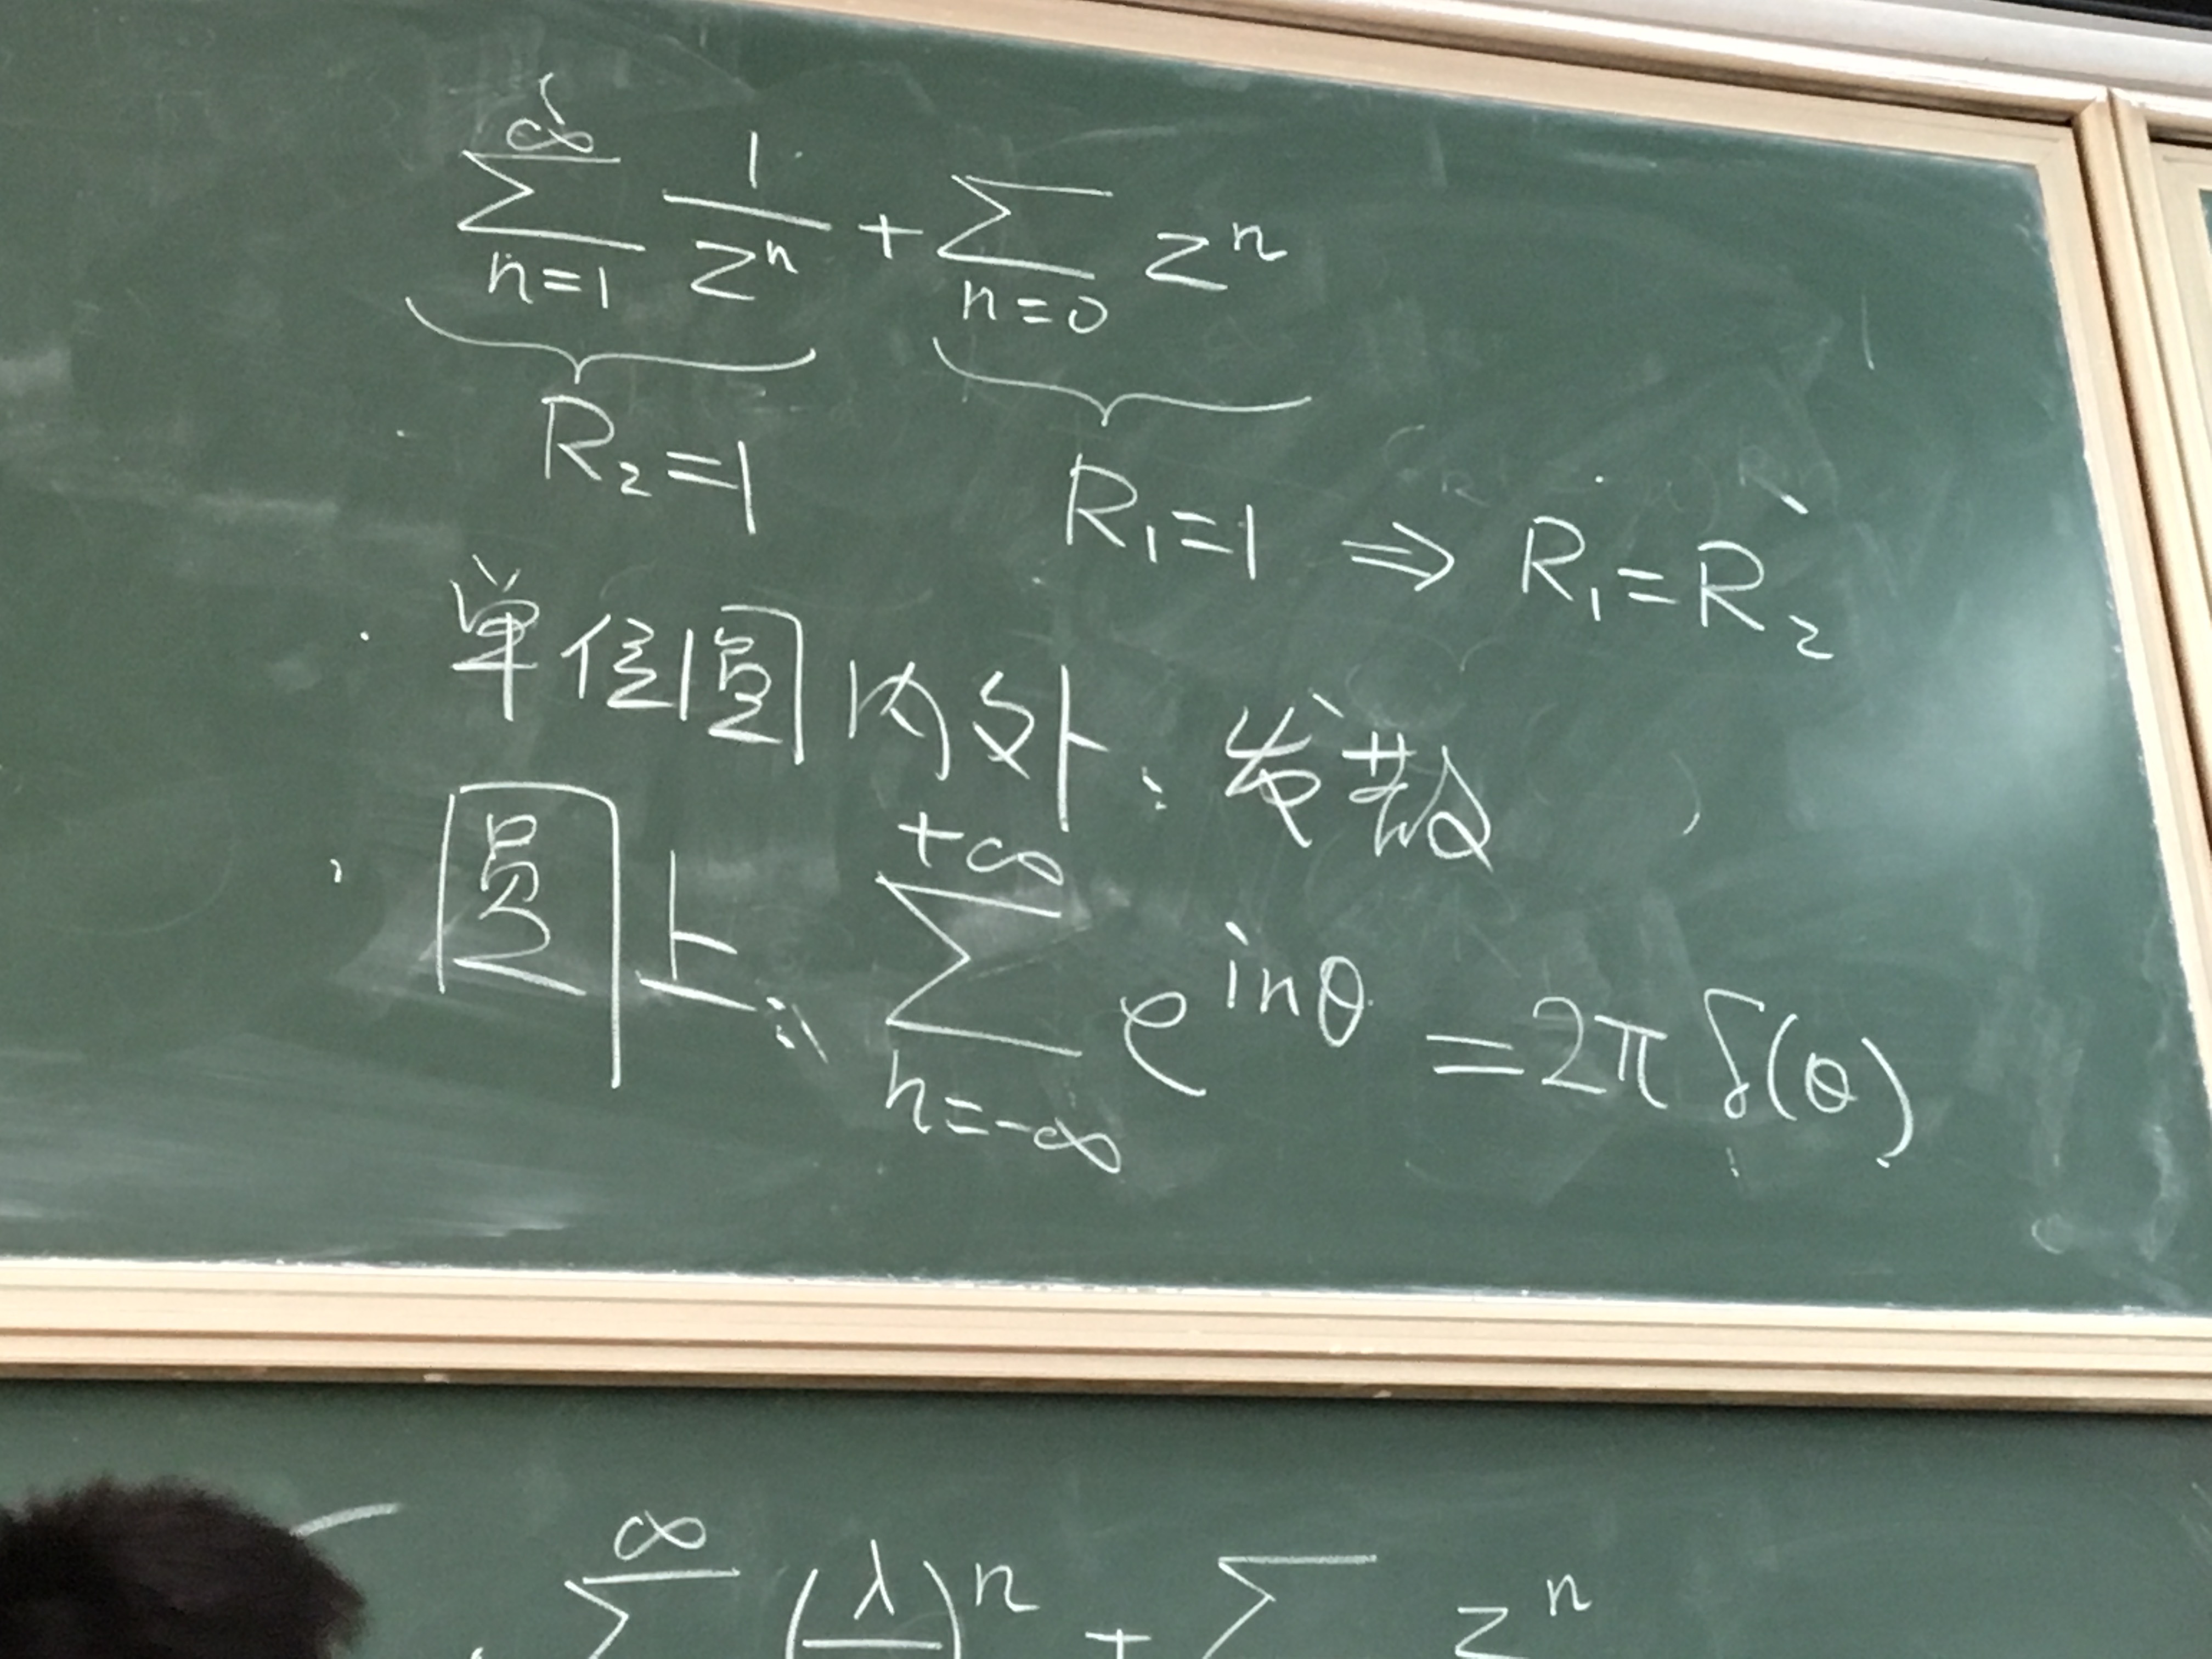 ∑_{n=1}^{∞} 1/zⁿ + ∑_{n=0} zⁿ
R₂=1 R₁=1 ⇒ R₁=R₂
单位圆内外：发散
圆上：∑_{n=-∞}^{+∞} e^{inθ} = 2πδ(θ)
∑^{∞} (λ/ )ⁿ + ∑ zⁿ